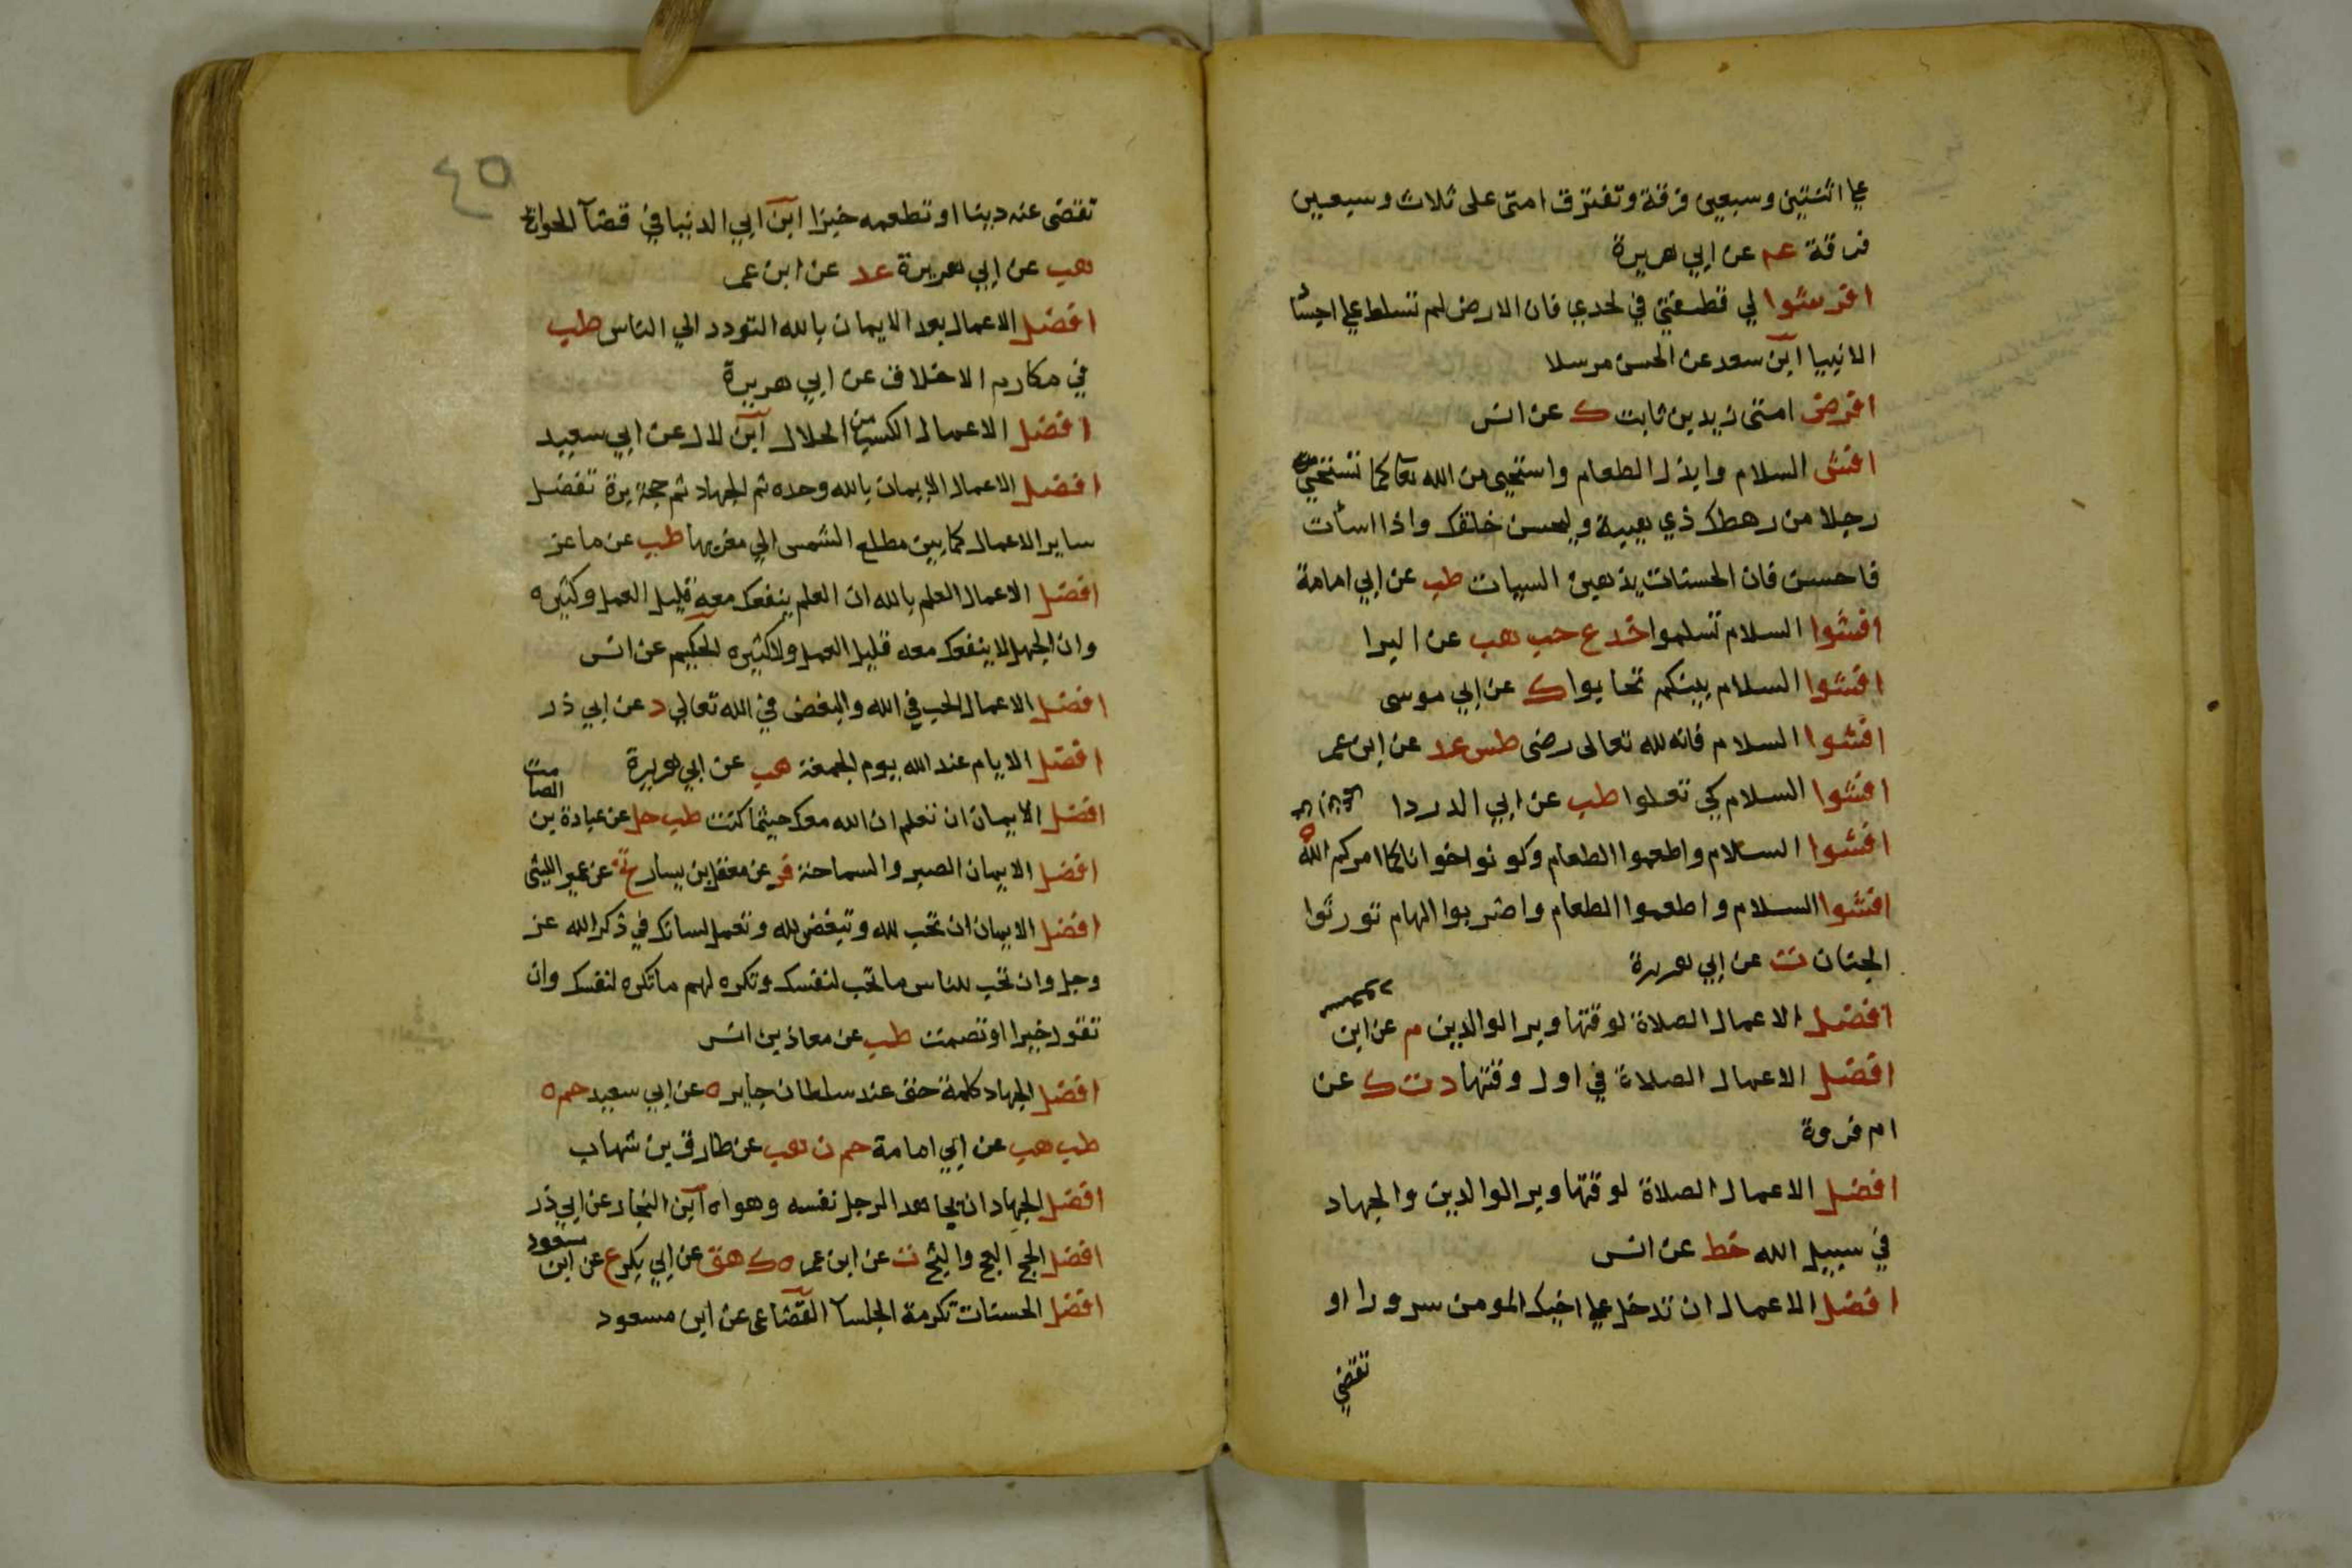 علي اثنتين وسبعين فرقة وتفترق امتي على ثلاث وسبعين
فرقة عم عن ابي هريرة
افرشوا لي قطيفتي في لحدي فان الارض لم تسلط علي اجساد
الانبيا ابن سعد عن الحسن مرسلا
افرض امتي زيد بن ثابت ك عن انس
افش السلام وابذل الطعام واستحيي من الله تعا كما تستحيي
رجلا من رهطك ذي هيبة وليحسن خلقك واذا اسأت
فاحسن فان الحسنات يذهبن السيات طب عن ابي امامة
افشوا السلام تسلموا خد ع حب هب عن البرا
افشوا السلام بينكم تحابوا ك عن ابي موسى
افشوا السلام فانه لله تعالى رضى طس عد عن ابن عمر
افشوا السلام كي تعلوا طب عن ابي الدردا
افشوا السلام واطعموا الطعام وكونوا اخوانا كما امركم الله ه
افشوا السلام واطعموا الطعام واضربوا الهام تورثوا
الجنان ت عن ابي هريرة
افضل الاعمال الصلاة لوقتها وبر الوالدين م عن ابن
مسعود
افضل الاعمال الصلاة في اول وقتها د ت ك عن
ام فروة
افضل الاعمال الصلاة لوقتها وبر الوالدين والجهاد
في سبيل الله خط عن انس
افضل الاعمال ان تدخل علي اخيك المومن سرورا او
تقضي
٤٥
تقضى عنه دينا او تطعمه خبزا ابن ابي الدنيا في قضآ الحوائج
هب عن ابي هريرة عد عن ابن عمر
افضل الاعمال بعد الايمان بالله التودد الي الناس طب
في مكارم الاخلاق عن ابي هريرة
افضل الاعمال الكسب من الحلال ابن لال عن ابي سعيد
افضل الاعمال الايمان بالله وحده ثم الجهاد ثم حجة برة تفضل
ساير الاعمال كما بين مطلع الشمس الي مغربها طب عن ماعز
افضل الاعمال العلم بالله ان العلم ينفعك معه قليل العمل وكثيره
وان الجهل لا ينفعك معه قليل العمل ولا كثيره الحكيم عن انس
افضل الاعمال الحب في الله والبغض في الله تعالي د عن ابي ذر
افضل الايام عند الله يوم الجمعة هب عن ابي هريرة
افضل الايمان ان تعلم ان الله معك حيثما كنت طب حل عن عبادة بن
الصامت
افضل الايمان الصبر والسماحة فر عن معقل بن يسار تخ عن عمير الليثي
افضل الايمان ان تحب لله وتبغض لله وتعمل لسانك في ذكر الله عز
وجل وان تحب للناس ما تحب لنفسك وتكره لهم ما تكره لنفسك وان
تقول خيرا او تصمت طب عن معاذ بن انس
افضل الجهاد كلمة حق عند سلطان جاير ه عن ابي سعيد حم ه
طب هب عن ابي امامة حم ن هب عن طارق بن شهاب
افضل الجهاد ان يجاهد الرجل نفسه وهواه ابن النجار عن ابي ذر
افضل الحج العج والثج ت عن ابن عمر ه ك هق عن ابي بكر ع عن ابن
مسعود
افضل الحسنات تكرمة الجلسآ القضاعى عن ابن مسعود